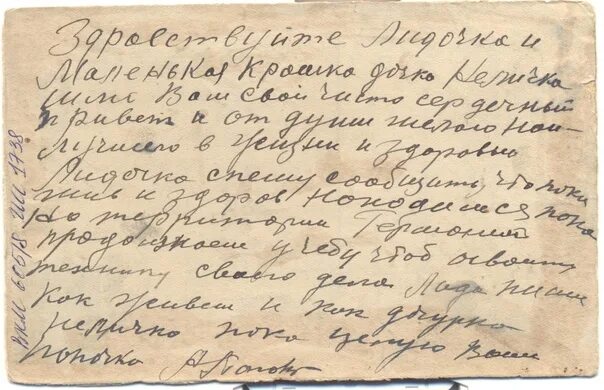 Здравствуйте Лидочка и
Маленькая крошка дочка Неличка
шлю Вам свой чисто сердечный
привет и от души желаю наи-
лучшего в жизни и здоровью
Лидочка спешу сообщить, что пока
жив и здоров находимся пока
на территории Германий
продолжаем учёбу чтоб освоить
технику своего дела Лида пиши
как живеш и как дочурка
Неличка пока целую Вас
папочка
ВКМ 60518 ИП 1738